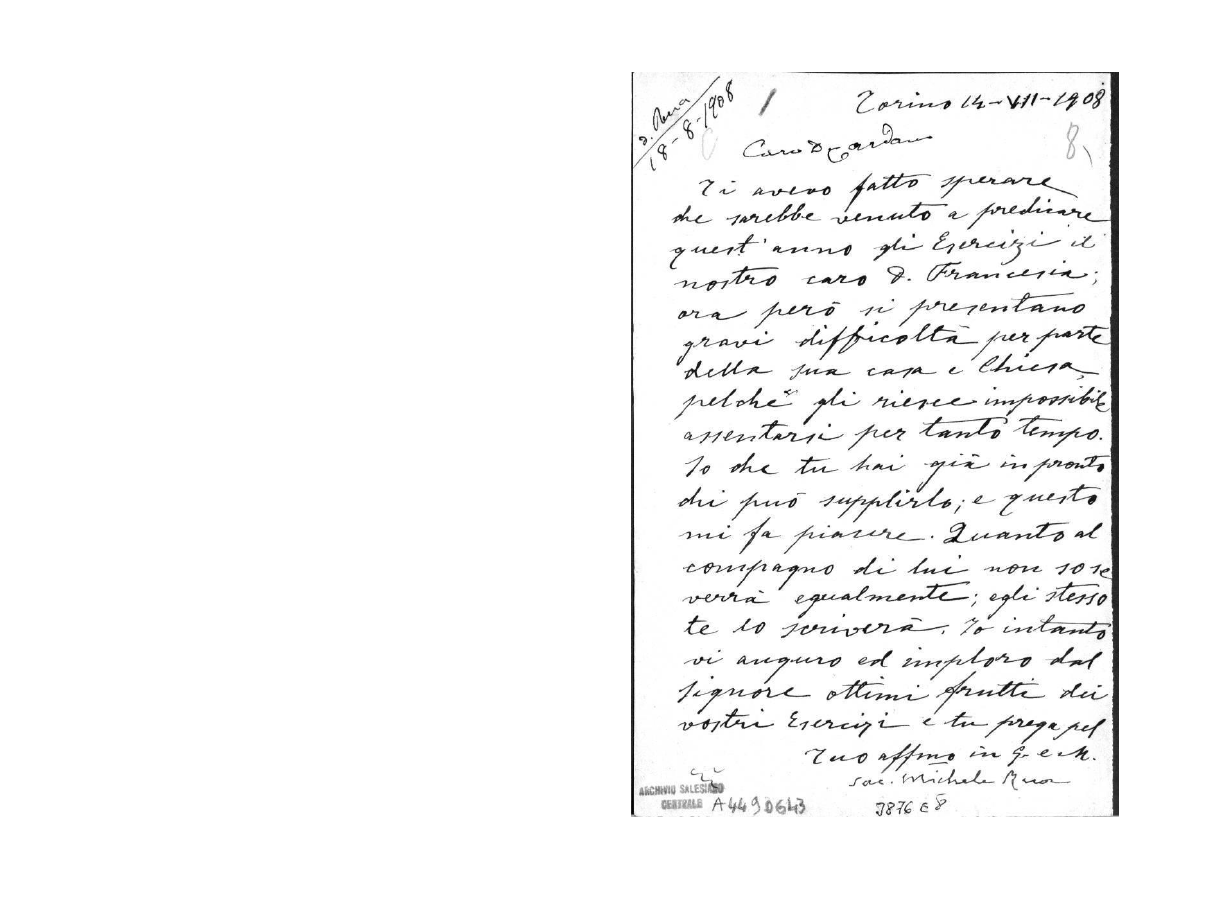 d. Rua
18-8-1908
Torino 14-VII-1908
8.
Caro D. Cardano
Ti avevo fatto sperare
che sarebbe venuto a predicare
quest'anno gli Esercizi il
nostro caro D. Francesia;
ora però si presentano
gravi difficoltà per parte
della sua casa e Chiesa,
pelchè gli riesce impossibile
assentarsi per tanto tempo.
So che tu hai già in pronto
chi può supplirlo; e questo
mi fa piacere. Quanto al
compagno di lui non so se
verrà egualmente; egli stesso
te lo scriverà. Io intanto
vi auguro ed imploro dal
Signore ottimi frutti dei
vostri Esercizi e tu prega pel
Tuo affmo in G. e M.
Sac. Michele Rua
ARCHIVIO SALESIANO
CENTRALE A4490643
3876 E 8